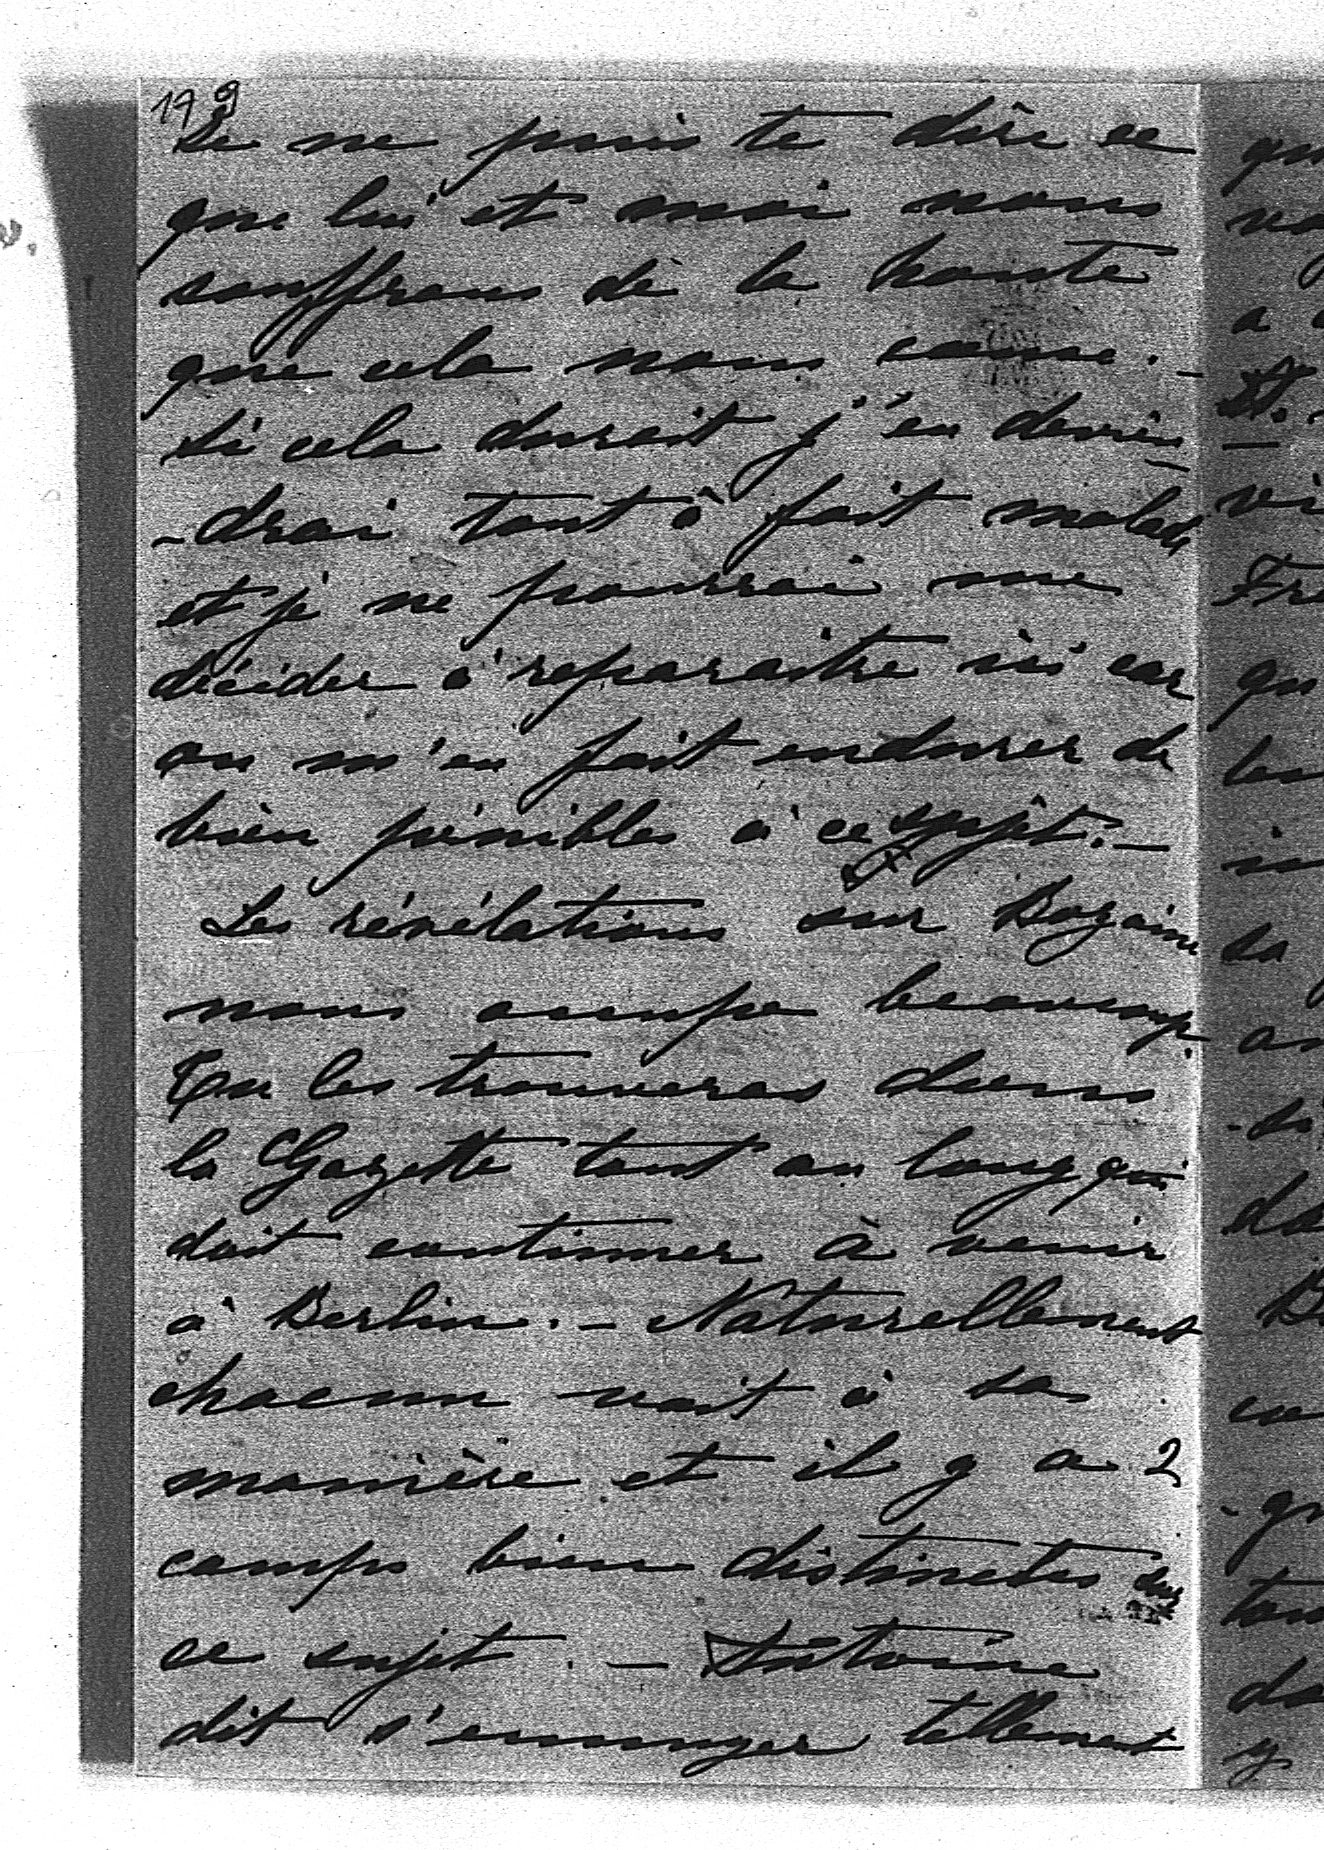 179
Je ne puis te dire ce
que lui et moi nous
souffrons de la honte
que cela nous cause. -
Si cela durait j'en devien
-drai tout à fait malade
et je ne pourrai me
décider à reparaitre ici car
on m'en fait endurer de
bien pénibles à ce sujet. -
Les révélations sur Bazaine
nous occupe beaucoup.
Tu les trouveras dans
la Gazette tout au long qui
doit continuer à venir
à Berlin. - Naturellement
chacun voit à sa
manière et il y a 2
camps bien distinctes sur
ce sujet. - Antoine
dit s'ennuyer tellement